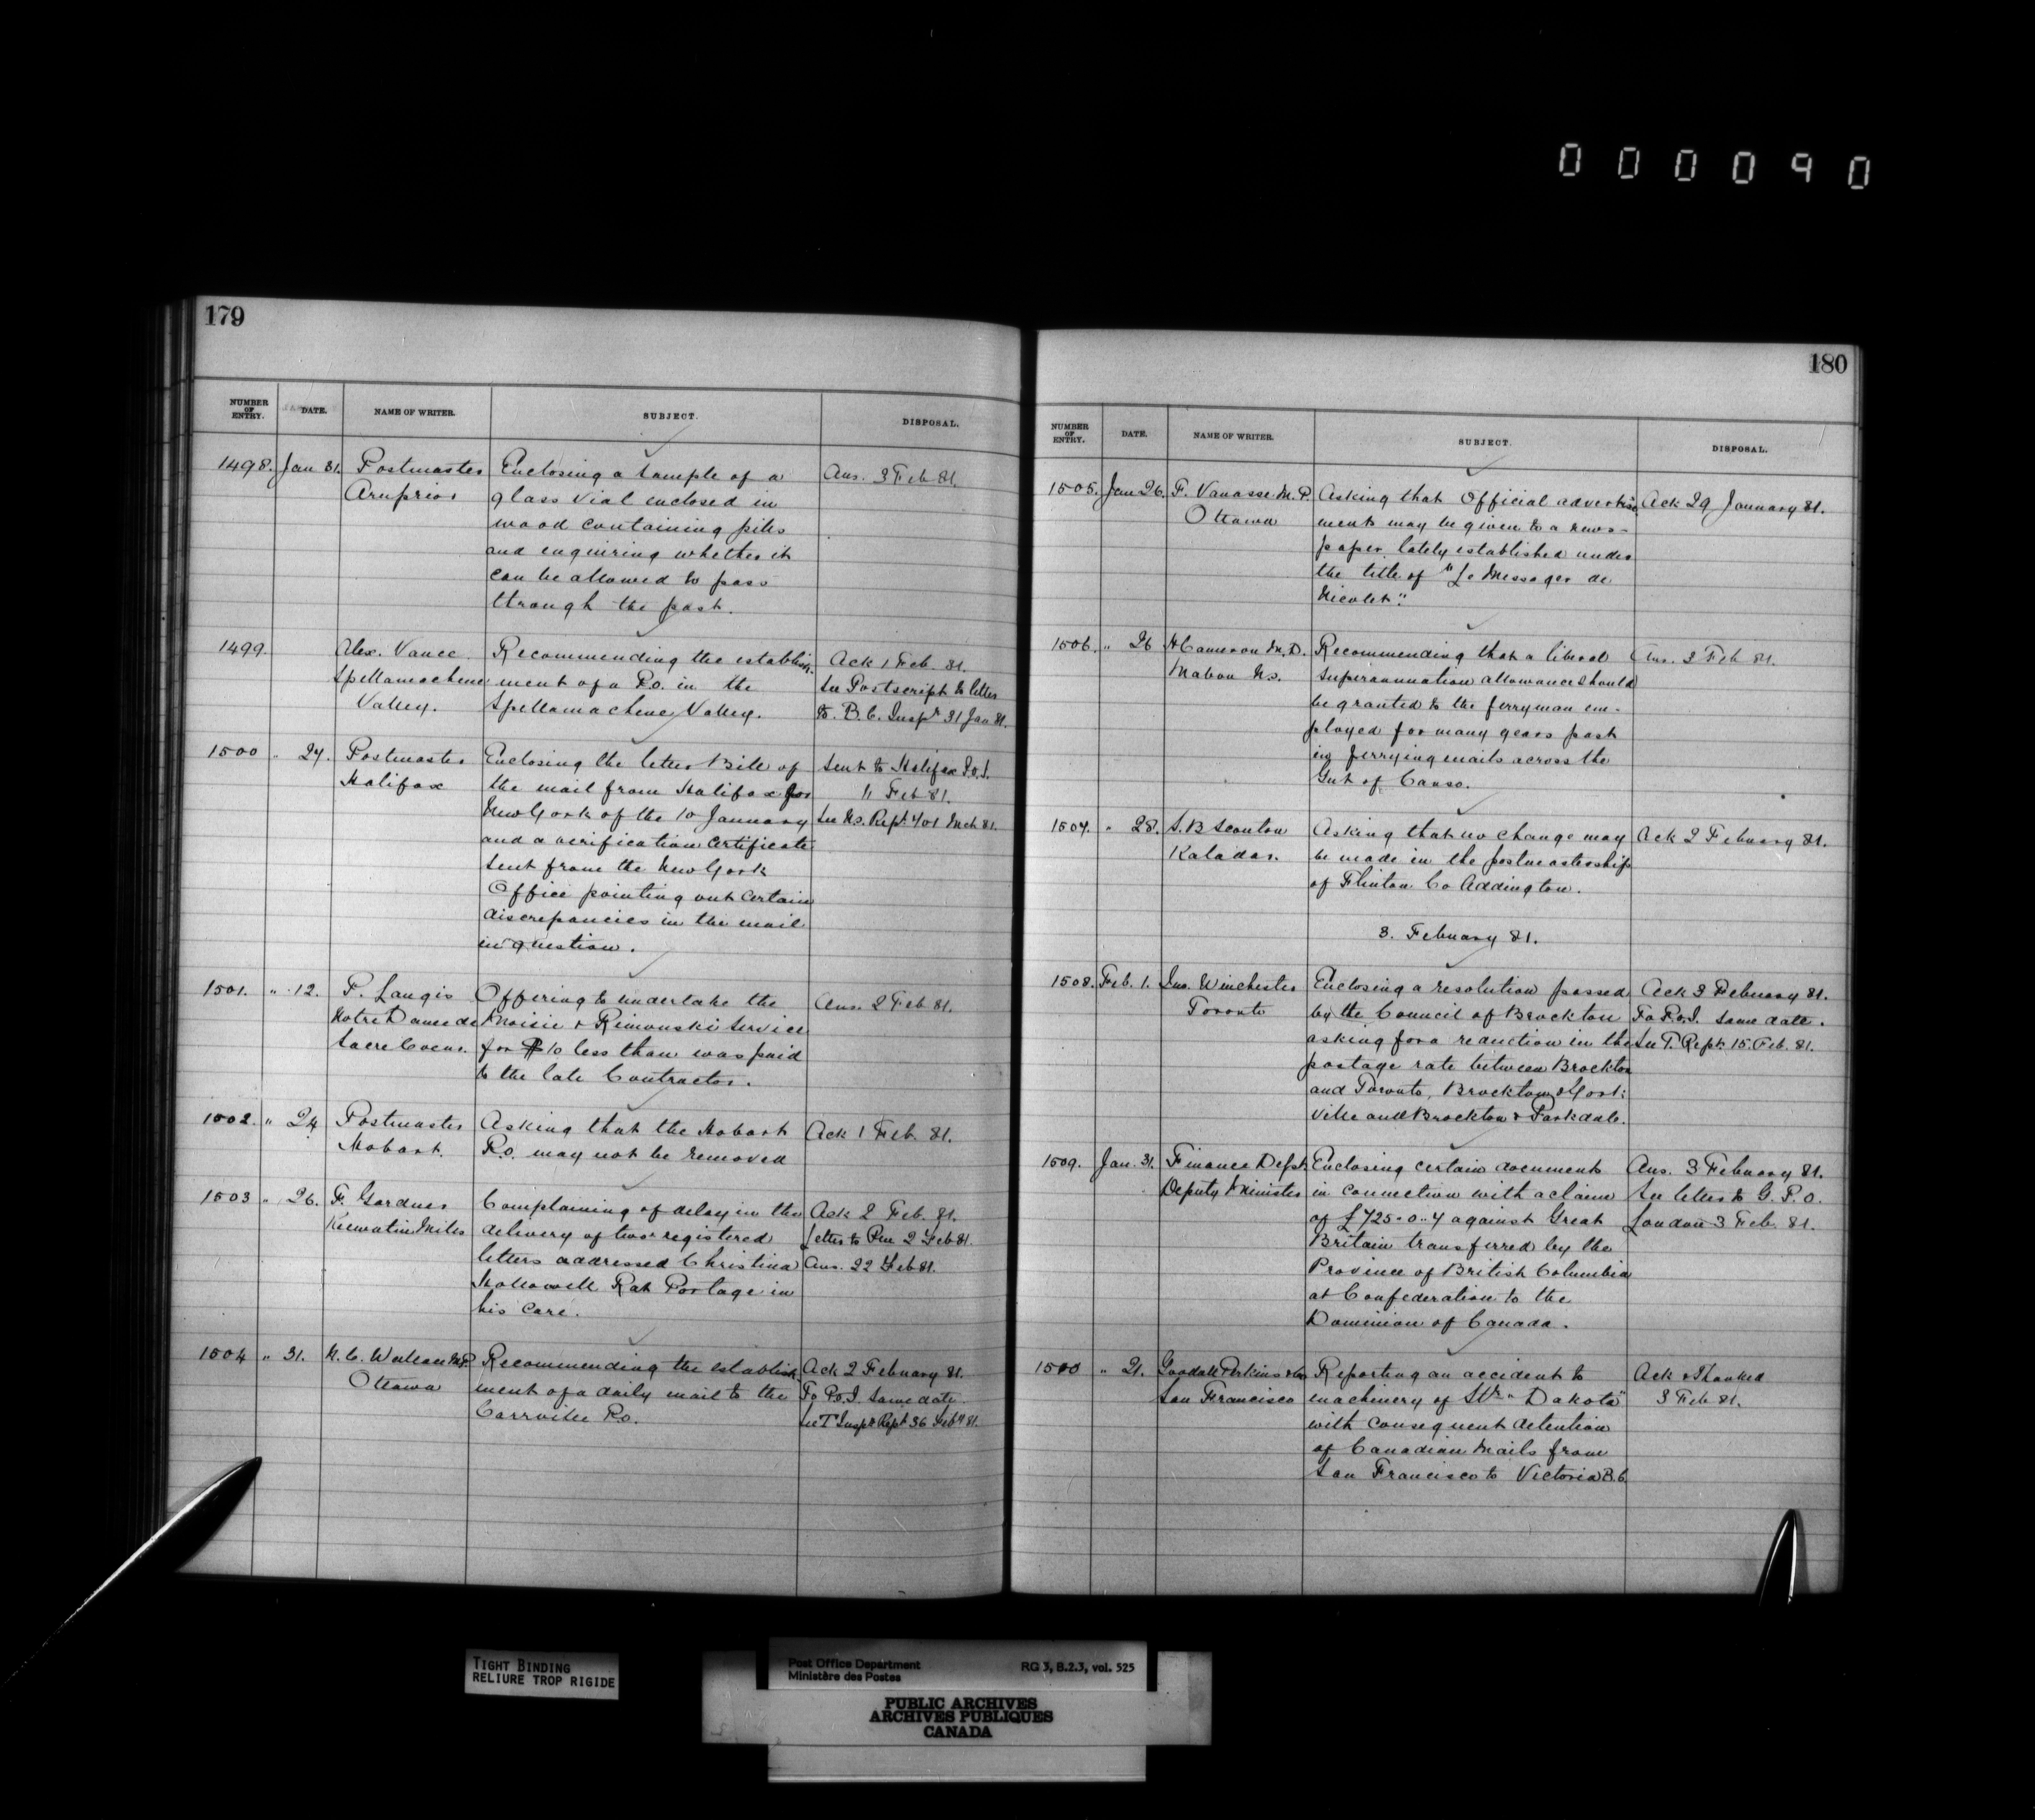 000090
179
NUMBER OF ENTRY. DATE. NAME OF WRITER. SUBJECT. DISPOSAL.
1498. Jan 31. Postmaster Enclosing a sample of a Ans. 3 Feb 81.
Arnprior glass vial enclosed in
wood containing pills
and enquiring whether it
can be allowed to pass
through the post.
1499. Alex. Vance Recommending the establish- Ack 1 Feb. 81.
Spellamacheene ment of a P.O. in the See Postscript to letter
Valley. Spellamachene Valley. to B.C. Inspr 31 Jan 81.
1500 " 27. Postmaster Enclosing the letter Bill of Sent to Halifax P.O.I.
Halifax the mail from Halifax for 11 Feb 81.
New York of the 10 January See N.S. Rept. 401 Mch 81.
and a verification certificate
sent from the New York
Office pointing out certain
discrepancies in the mail
in question.
1501. " 12. P. Langis Offering to undertake the Ans. 2 Feb 81.
Notre Dame de Moisie & Rimouski service
Sacre Coeur. for $10 less than was paid
to the late Contractor.
1502. " 24 Postmaster Asking that the Hobart Ack 1 Feb. 81.
Hobart. P.O. may not be removed
1503 " 26. F. Gardner Complaining of delay in the Ack 2 Feb. 81.
Keewatin Mills delivery of two registered Letter to Pm 2 Feb 81.
letters addressed Christina Ans. 22 Feb 81.
Hollowell Rat Portage in
his care.
1504 " 31. N. C. Wallace M.P. Recommending the establish- Ack 2 February 81.
Ottawa ment of a daily mail to the To P.O.I. same date
Carrville P.O. See T Inspr Rept 36 Feby 81.
180
NUMBER OF ENTRY. DATE. NAME OF WRITER. SUBJECT. DISPOSAL.
1505. Jan 26. F. Vanasse M.P. Asking that Official advertise Ack 29 January 81.
Ottawa ments may be given to a news-
paper lately established under
the title of "Le Messager de
Nicolet".
1506. " 26 H Cameron M.D. Recommending that a liberal Ans. 2 Feb 81.
Mabou N.S. superannuation allowance should
be granted to the ferryman em-
ployed for many years past
in ferrying mails across the
Gut of Canso.
1507. " 28. S. B Scouton Asking that no change may Ack 2 February 81.
Kaladar. be made in the postmastership
of Flinton Co Addington.
3. February 81.
1508. Feb. 1. Jno. Winchester Enclosing a resolution passed Ack 3 February 81.
Toronto by the Council of Brockton To P.O.I. same date.
asking for a reduction in the See T. Rept. 15 Feb. 81.
postage rate between Brockton
and Toronto, Brockton & York-
ville and Brockton & Parkdale.
1509. Jan. 31. Finance Dept Enclosing certain documents Ans. 3 February 81.
Deputy Minister in connection with a claim See letter to G.P.O.
of £725-0-4 against Great London 3 Feb. 81.
Britain transferred by the
Province of British Columbia
at Confederation to the
Dominion of Canada.
1510 " 21. Goodall Perkins & Co Reporting an accident to Ack & Thanked
San Francisco machinery of Str "Dakota" 3 Feb 81.
with consequent detention
of Canadian Mails from
San Francisco to Victoria B.C.
TIGHT BINDING
RELIURE TROP RIGIDE
Post Office Department RG 3, B.2.3, vol. 525
Ministère des Postes
PUBLIC ARCHIVES
ARCHIVES PUBLIQUES
CANADA